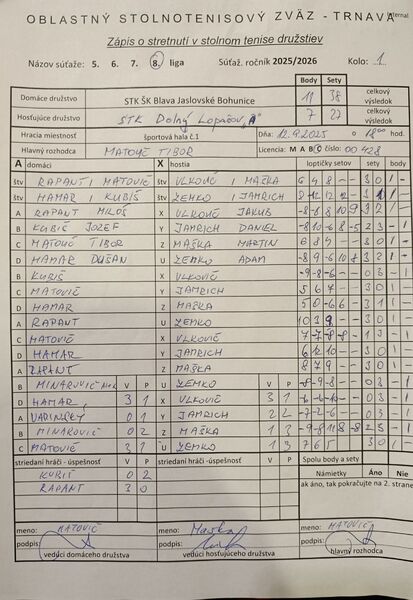 OBLASTNÝ STOLNOTENISOVÝ ZVÄZ - TRNAVA
Zápis o stretnutí v stolnom tenise družstiev
Názov súťaže: 5. 6. 7. 8. liga Súťaž. ročník 2025/2026 Kolo: 1
Body Sety
Domáce družstvo STK ŠK Blava Jaslovské Bohunice 11 38 celkový výsledok
Hosťujúce družstvo STK Dolný Lopašov "A" 7 27 celkový výsledok
Hracia miestnosť športová hala č.1 Dňa: 12.9.2025 o 18:00 hod.
Hlavný rozhodca MATOVIČ TIBOR Licencia: M A B C číslo: 00428
A domáci X hostia loptičky setov sety body
štv RAPANT I MATOVIČ štv VLKOVIČ I MAŠKA 6 4 8 - - 3 0 1 -
štv HAMAR I KUBIŠ ŽEMKO I JAMRICH
A RAPANT MILOŠ X VLKOVIČ JAKUB -8 -8 8 10 9 3 2 1 -
B KUBIŠ JOZEF Y JAMRICH DANIEL -8 10 -6 8 -5 2 3 - 1
C MATOVIČ TIBOR Z MAŠKA MARTIN 6 8 4 - - 3 0 1 -
D HAMAR DUŠAN U ŽEMKO ADAM -8 9 -6 10 8 3 2 1 -
B KUBIŠ X VLKOVIČ -9 -8 -6 - - 0 3 - 1
C MATOVIČ Y JAMRICH 5 6 7 - - 3 0 1 -
D HAMAR Z MAŠKA 5 0 -6 6 - 3 1 1 -
A RAPANT U ŽEMKO 10 3 9 - - 3 0 1 -
C MATOVIČ X VLKOVIČ 7 -7 -8 -8 - 1 3 - 1
D HAMAR Y JAMRICH 6 12 10 - - 3 0 1 -
A RAPANT Z MAŠKA 8 7 9 - - 3 0 1 -
B MINAROVIČ U ŽEMKO -8 -9 -8 - - 0 3 - 1
D HAMAR 3 1 X VLKOVIČ 3 1 -6 -6 -10 - - 0 3 - 1
A VADINSKÝ 0 1 Y JAMRICH 2 2 -7 -2 -6 - - 0 3 - 1
B MINAROVIČ 0 2 Z MAŠKA 1 3 -9 -8 11 8 -8 2 3 - 1
C MATOVIČ 3 1 U ŽEMKO 1 3 7 6 5 3 0 1 -
V P V P
striedaní hráči - úspešnosť V P striedaní hráči - úspešnosť V P Spolu body a sety
KUBIŠ 0 2 Námietky Áno Nie
RAPANT 3 0 ak áno, tak pokračujte na 2. strane
meno: MATOVIČ meno: Maška meno: MATOVIČ
podpis: podpis: podpis:
vedúci domáceho družstva vedúci hosťujúceho družstva hlavný rozhodca